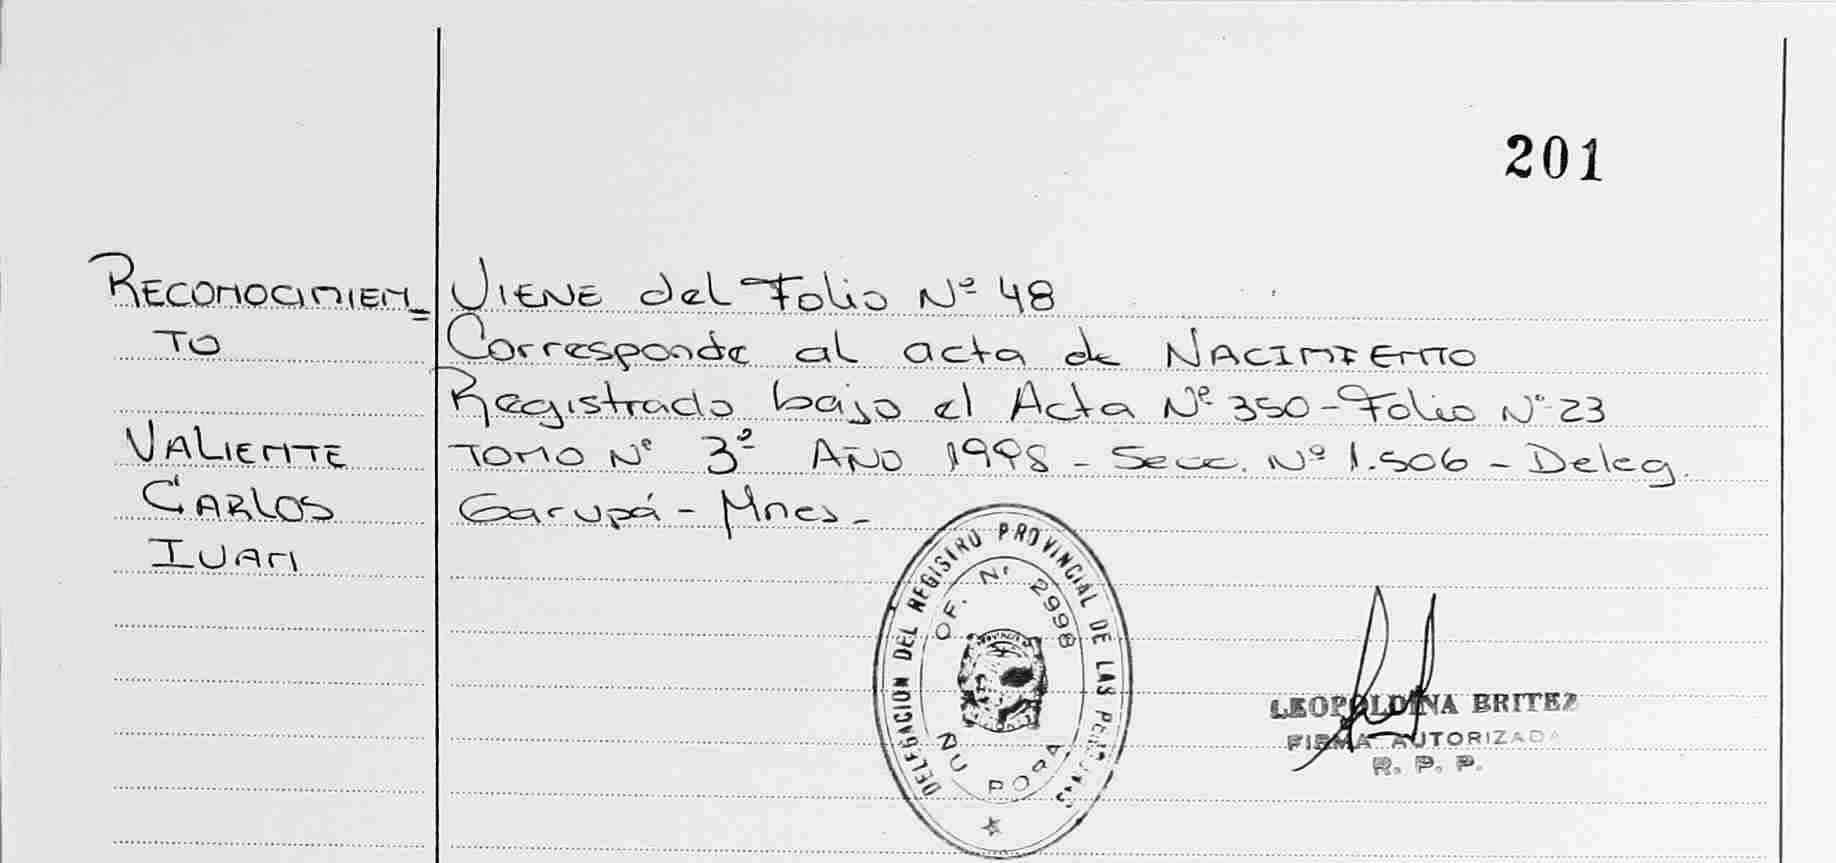 201
RECONOCIMIEN=
TO
VALIENTE
CARLOS
IVAN
VIENE del Folio Nº 48
Corresponde al acta de NACIMIENTO
Registrado bajo el Acta Nº 350 - Folio Nº 23
TOMO Nº 3º AÑO 1998 - Secc. Nº 1.506 - Deleg.
Garupá - Mnes -
DELEGACION DEL REGISTRO PROVINCIAL DE LAS PERSONAS
OF. Nº 2998
ÑU PORA
LEOPOLDINA BRITEZ
FIRMA AUTORIZADA
R. P. P.